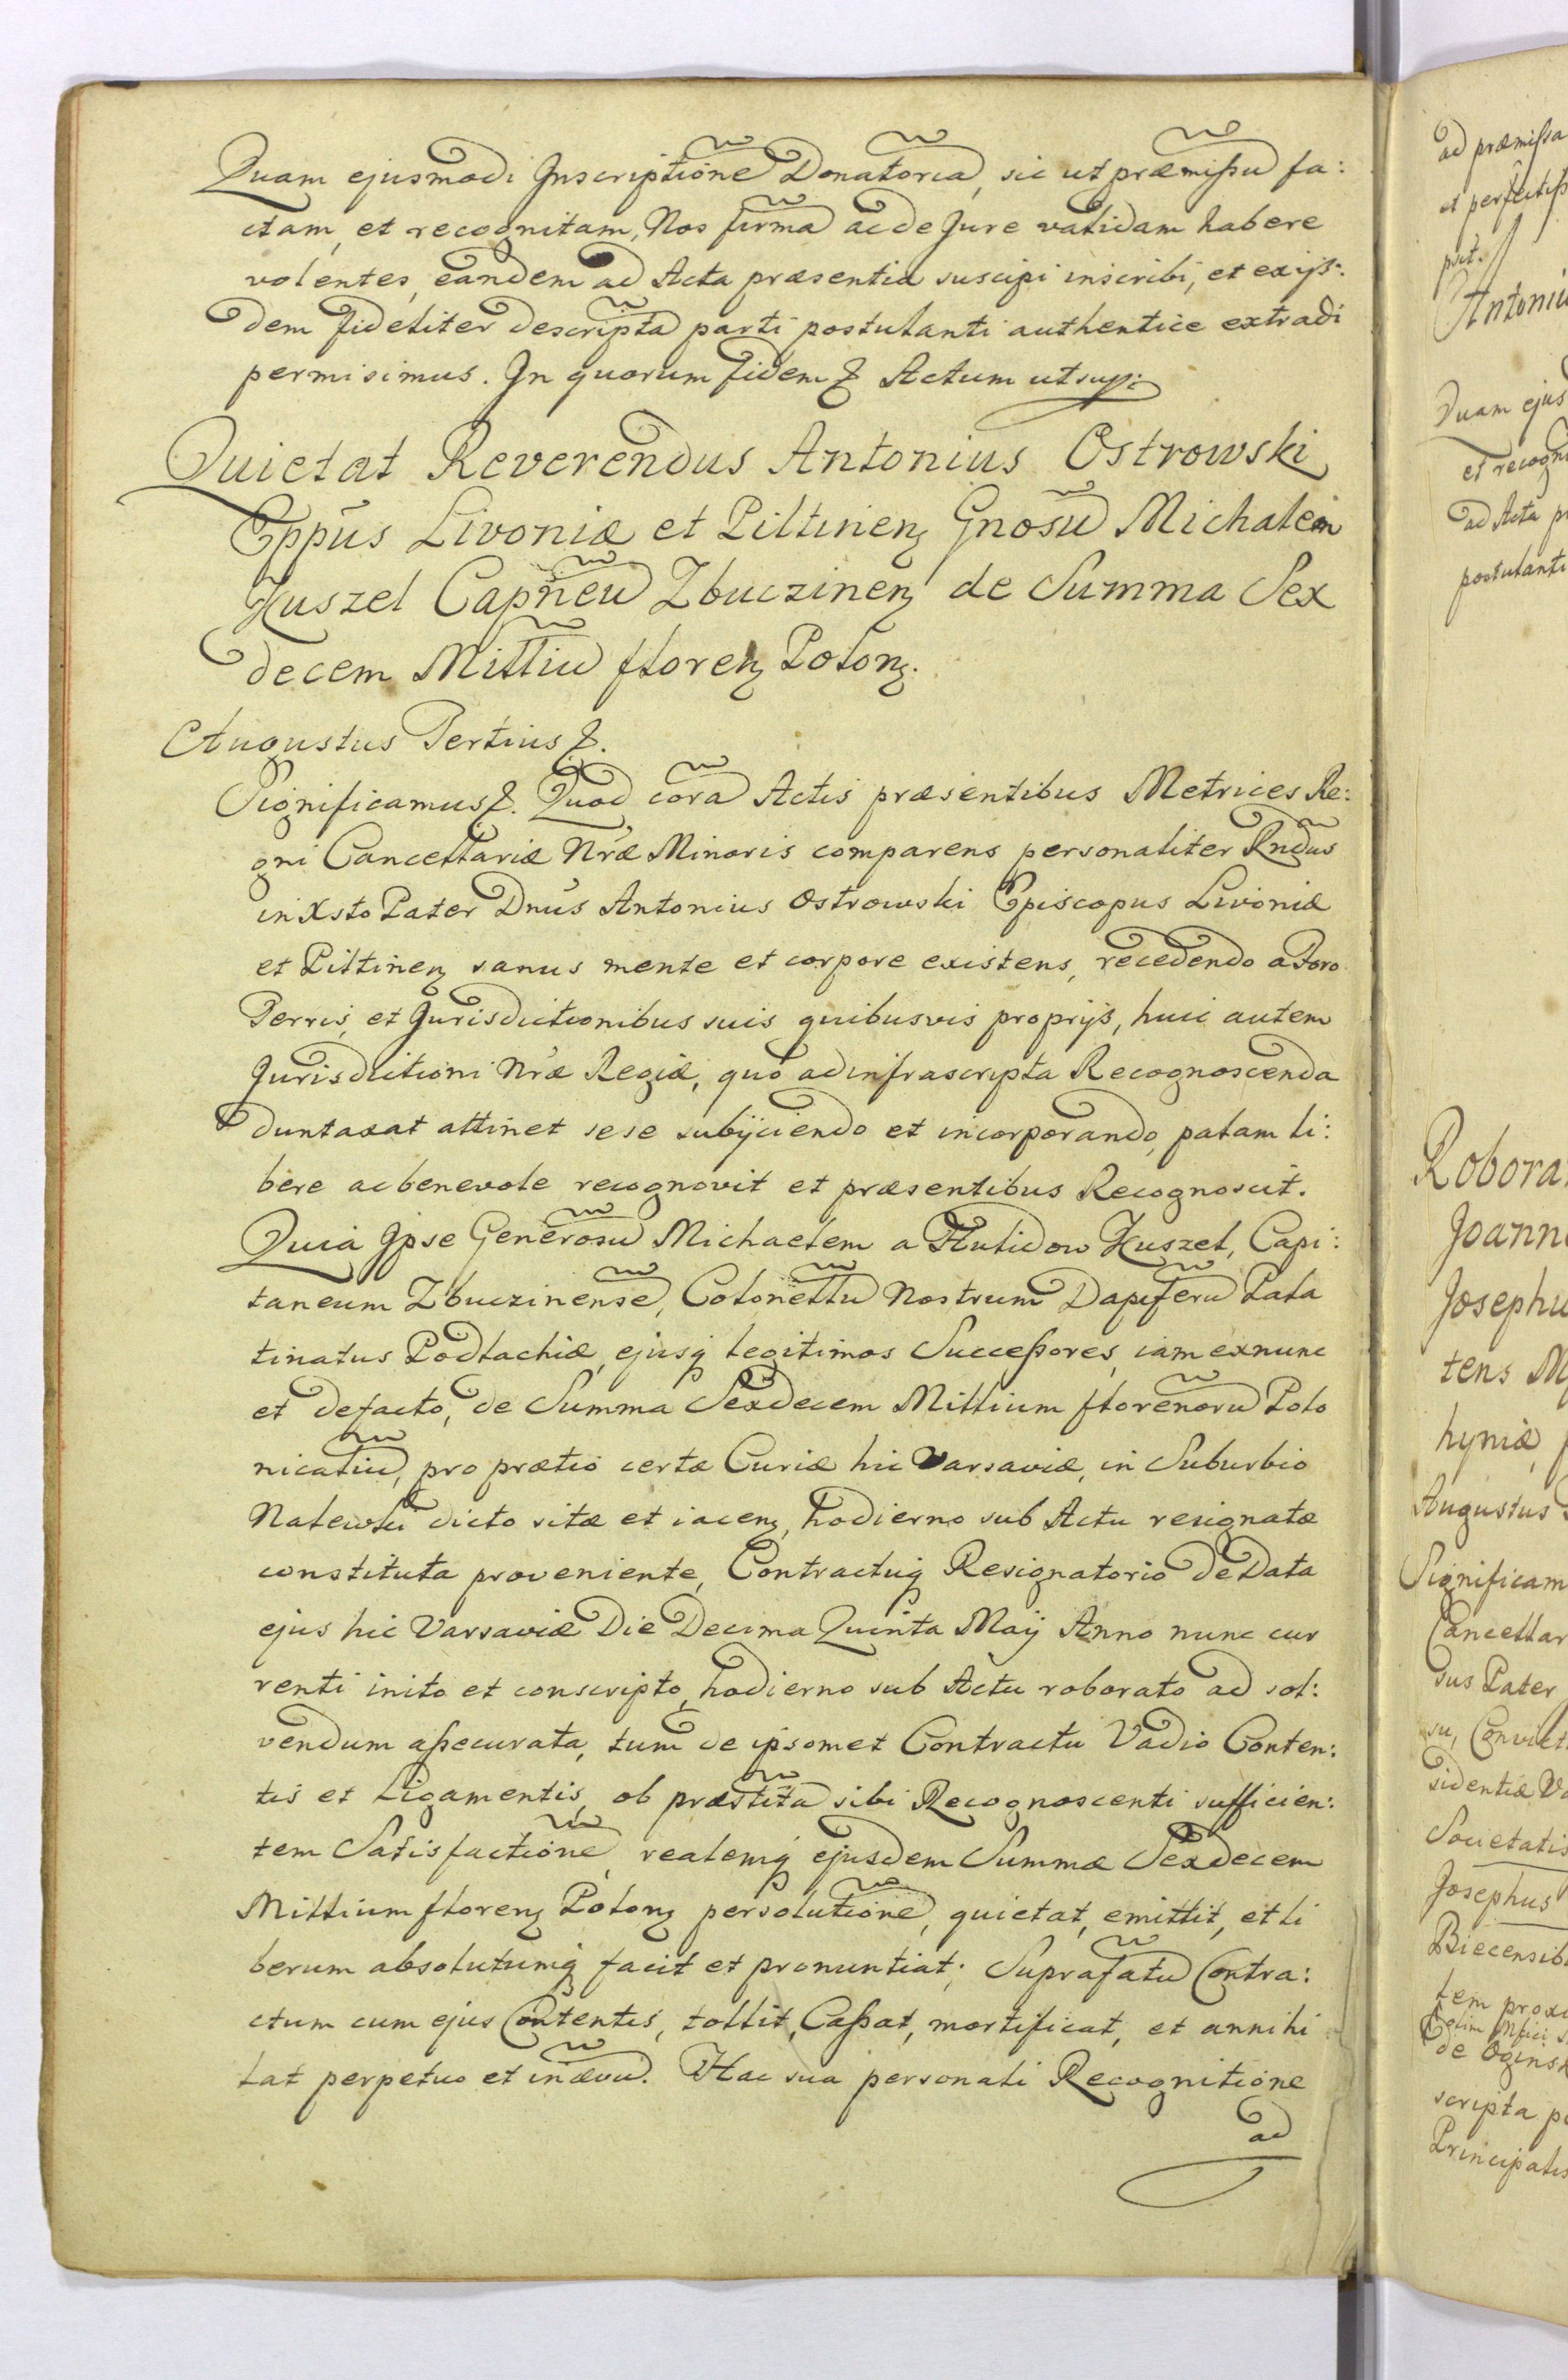 Quam ejusmodi Inscriptionē Donatoriā, sic ut præmißū fa:
ctam, et recognitam, Nos firmā ac de Jure validam habere
volentes, eandem ad Acta præsentia suscipi inscribi, et exijs:
dem fideliter descriptā parti postulanti authentice extradi
permisimus. In quorum fidem &. Actum ut sup:
Quietat Reverendus Antonius Ostrowski
Eppūs Livoniæ et Piltinen̄ Gnosū Michalem
Kuszel Capnēū Zbuczinen̄ de Summa Sex
decem Milliū floren̄ Polon̄.
Augustus Tertius &.
Significamus &. Quod corā Actis præsentibus Metrices Re:
gni Cancellariæ Nræ Minoris comparens personaliter Rndūs
in Xsto Pater Dnus Antonius Ostrowski Episcopus Livoniæ
et Piltinen̄ sanus mente et corpore existens, recedendo a Foro
Terris, et Jurisdictionibus suis quibusvis proprijs, huic autem
Jurisdictioni Nræ Regiæ, quo ad infrascripta Recognoscenda
duntaxat attinet sese subijciendo et incorporando, palam li:
bere ac benevole recognovit et præsentibus Recognoscit.
Quia Ipse Generosū Michaelem a Hulidow Kuszel, Capi:
taneum Zbuczinensē, Colonellū Nostrum Dapiferū Pala
tinatus Podlachiæ, ejusq̨ legitimos Succeßores, iam exnunc
et defacto, de Summa Sexdecem Millium florenorū Polo
nicaliū, pro prætio certæ Curiæ hic Varsaviæ, in Suburbio
Nalewki dicto sitæ et iacen̄, hodierno sub Actu resignatæ
constituta proveniente, Contractuq̨ Resignatorio de Data
ejus hic Varsaviæ Die Decima Quinta Maij Anno nunc cur
renti inito et conscripto, hodierno sub Actu roborato ad sol:
vendum aßecurata, tum de ipsomet Contractu Vadio Conten:
tis et Ligamentis, ob præstitā sibi Recognoscenti sufficien:
tem Satisfactionē, realemq̨ ejusdem Summæ Sexdecem
Millium floren̄ Polon̄ persolutionē, quietat, emittit, et li
berum absolutumq̨ facit et pronuntiat; Suprafatū Contra:
ctum cum ejus Contentis, tollit, Caßat, mortificat, et annihi
lat perpetuo et in ævū. Hac sua personali Recognitione
ad
ad præmißa
Antoniu
Quam ejus
et recogni
ad Acta pr
postulanti
Robora
Joann
Josephu
tens M
hyniæ,
Augustus
Significam
Cancellar
sus Pater
su, Convict
sidentiæ Va
Societatis
Josephus
Biecensib
tem proxi
de Ogińsk
scripta pe
Principalis